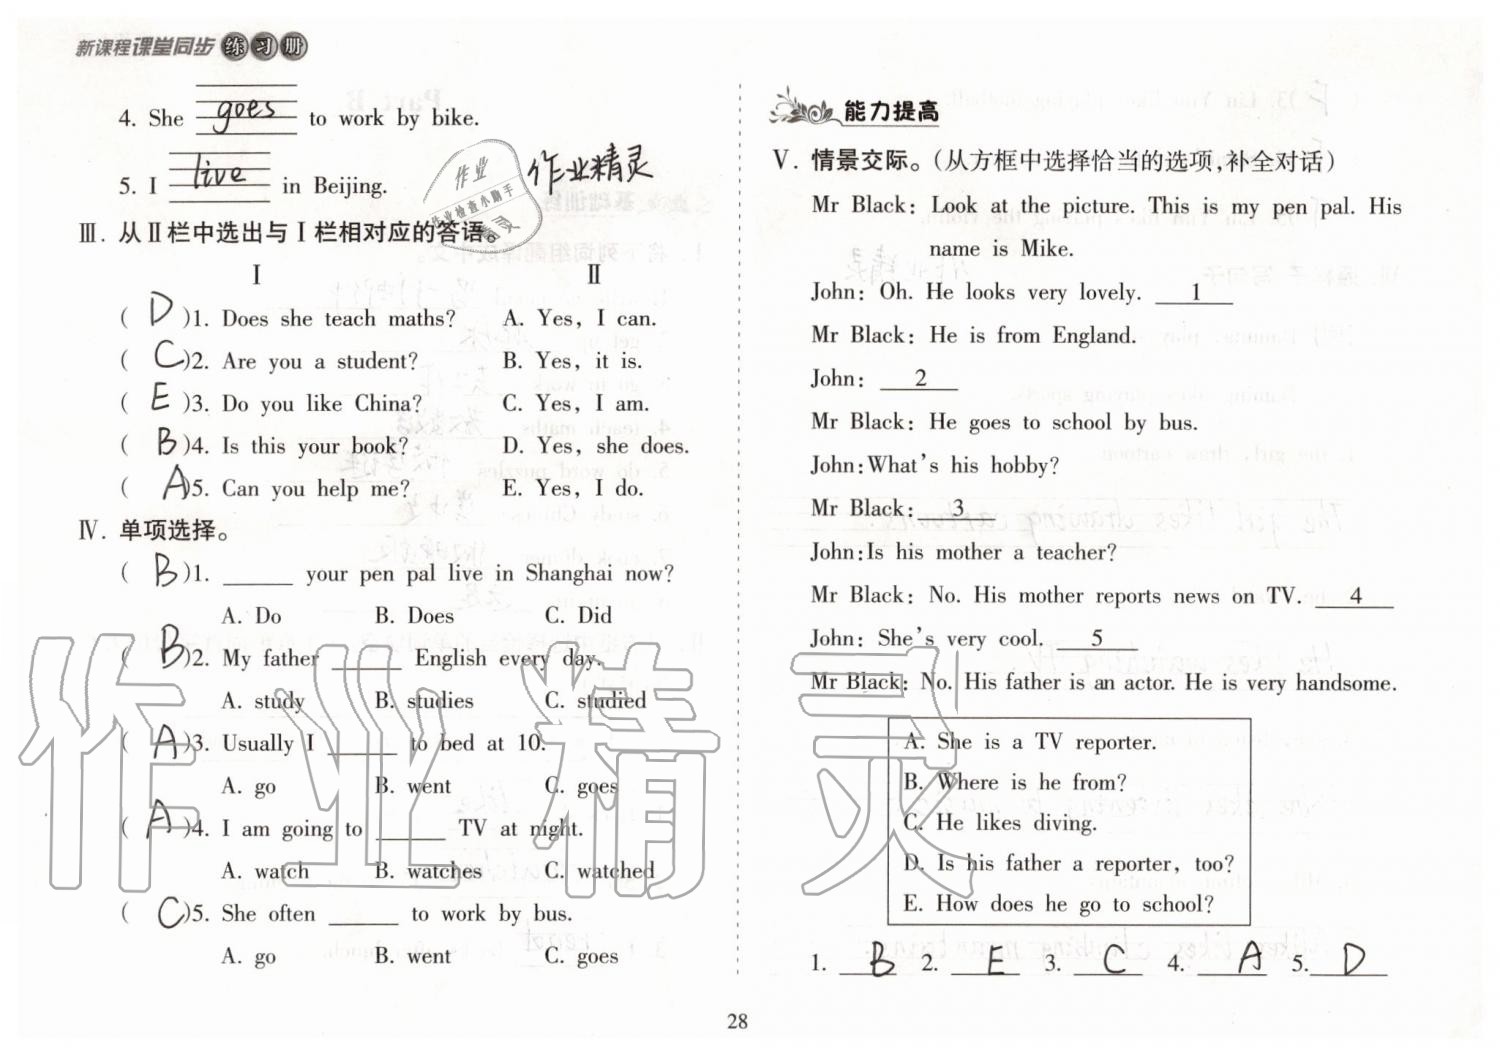 新课程课堂同步练习册
4. She goes to work by bike.
5. I live in Beijing.
作业
作业检查小助手
精灵
作业精灵
Ⅲ. 从Ⅱ栏中选出与Ⅰ栏相对应的答语。
Ⅰ Ⅱ
( D )1. Does she teach maths? A. Yes, I can.
( C )2. Are you a student? B. Yes, it is.
( E )3. Do you like China? C. Yes, I am.
( B )4. Is this your book? D. Yes, she does.
( A )5. Can you help me? E. Yes, I do.
Ⅳ. 单项选择。
( B )1. ______ your pen pal live in Shanghai now?
A. Do B. Does C. Did
( B )2. My father ______ English every day.
A. study B. studies C. studied
( A )3. Usually I ______ to bed at 10.
A. go B. went C. goes
( A )4. I am going to ______ TV at night.
A. watch B. watches C. watched
( C )5. She often ______ to work by bus.
A. go B. went C. goes
作业精灵
能力提高
Ⅴ. 情景交际。(从方框中选择恰当的选项,补全对话)
Mr Black: Look at the picture. This is my pen pal. His
name is Mike.
John: Oh. He looks very lovely. 1
Mr Black: He is from England.
John: 2
Mr Black: He goes to school by bus.
John:What's his hobby?
Mr Black: 3
John:Is his mother a teacher?
Mr Black: No. His mother reports news on TV. 4
John: She's very cool. 5
Mr Black: No. His father is an actor. He is very handsome.
A. She is a TV reporter.
B. Where is he from?
C. He likes diving.
D. Is his father a reporter, too?
E. How does he go to school?
1. B 2. E 3. C 4. A 5. D
28